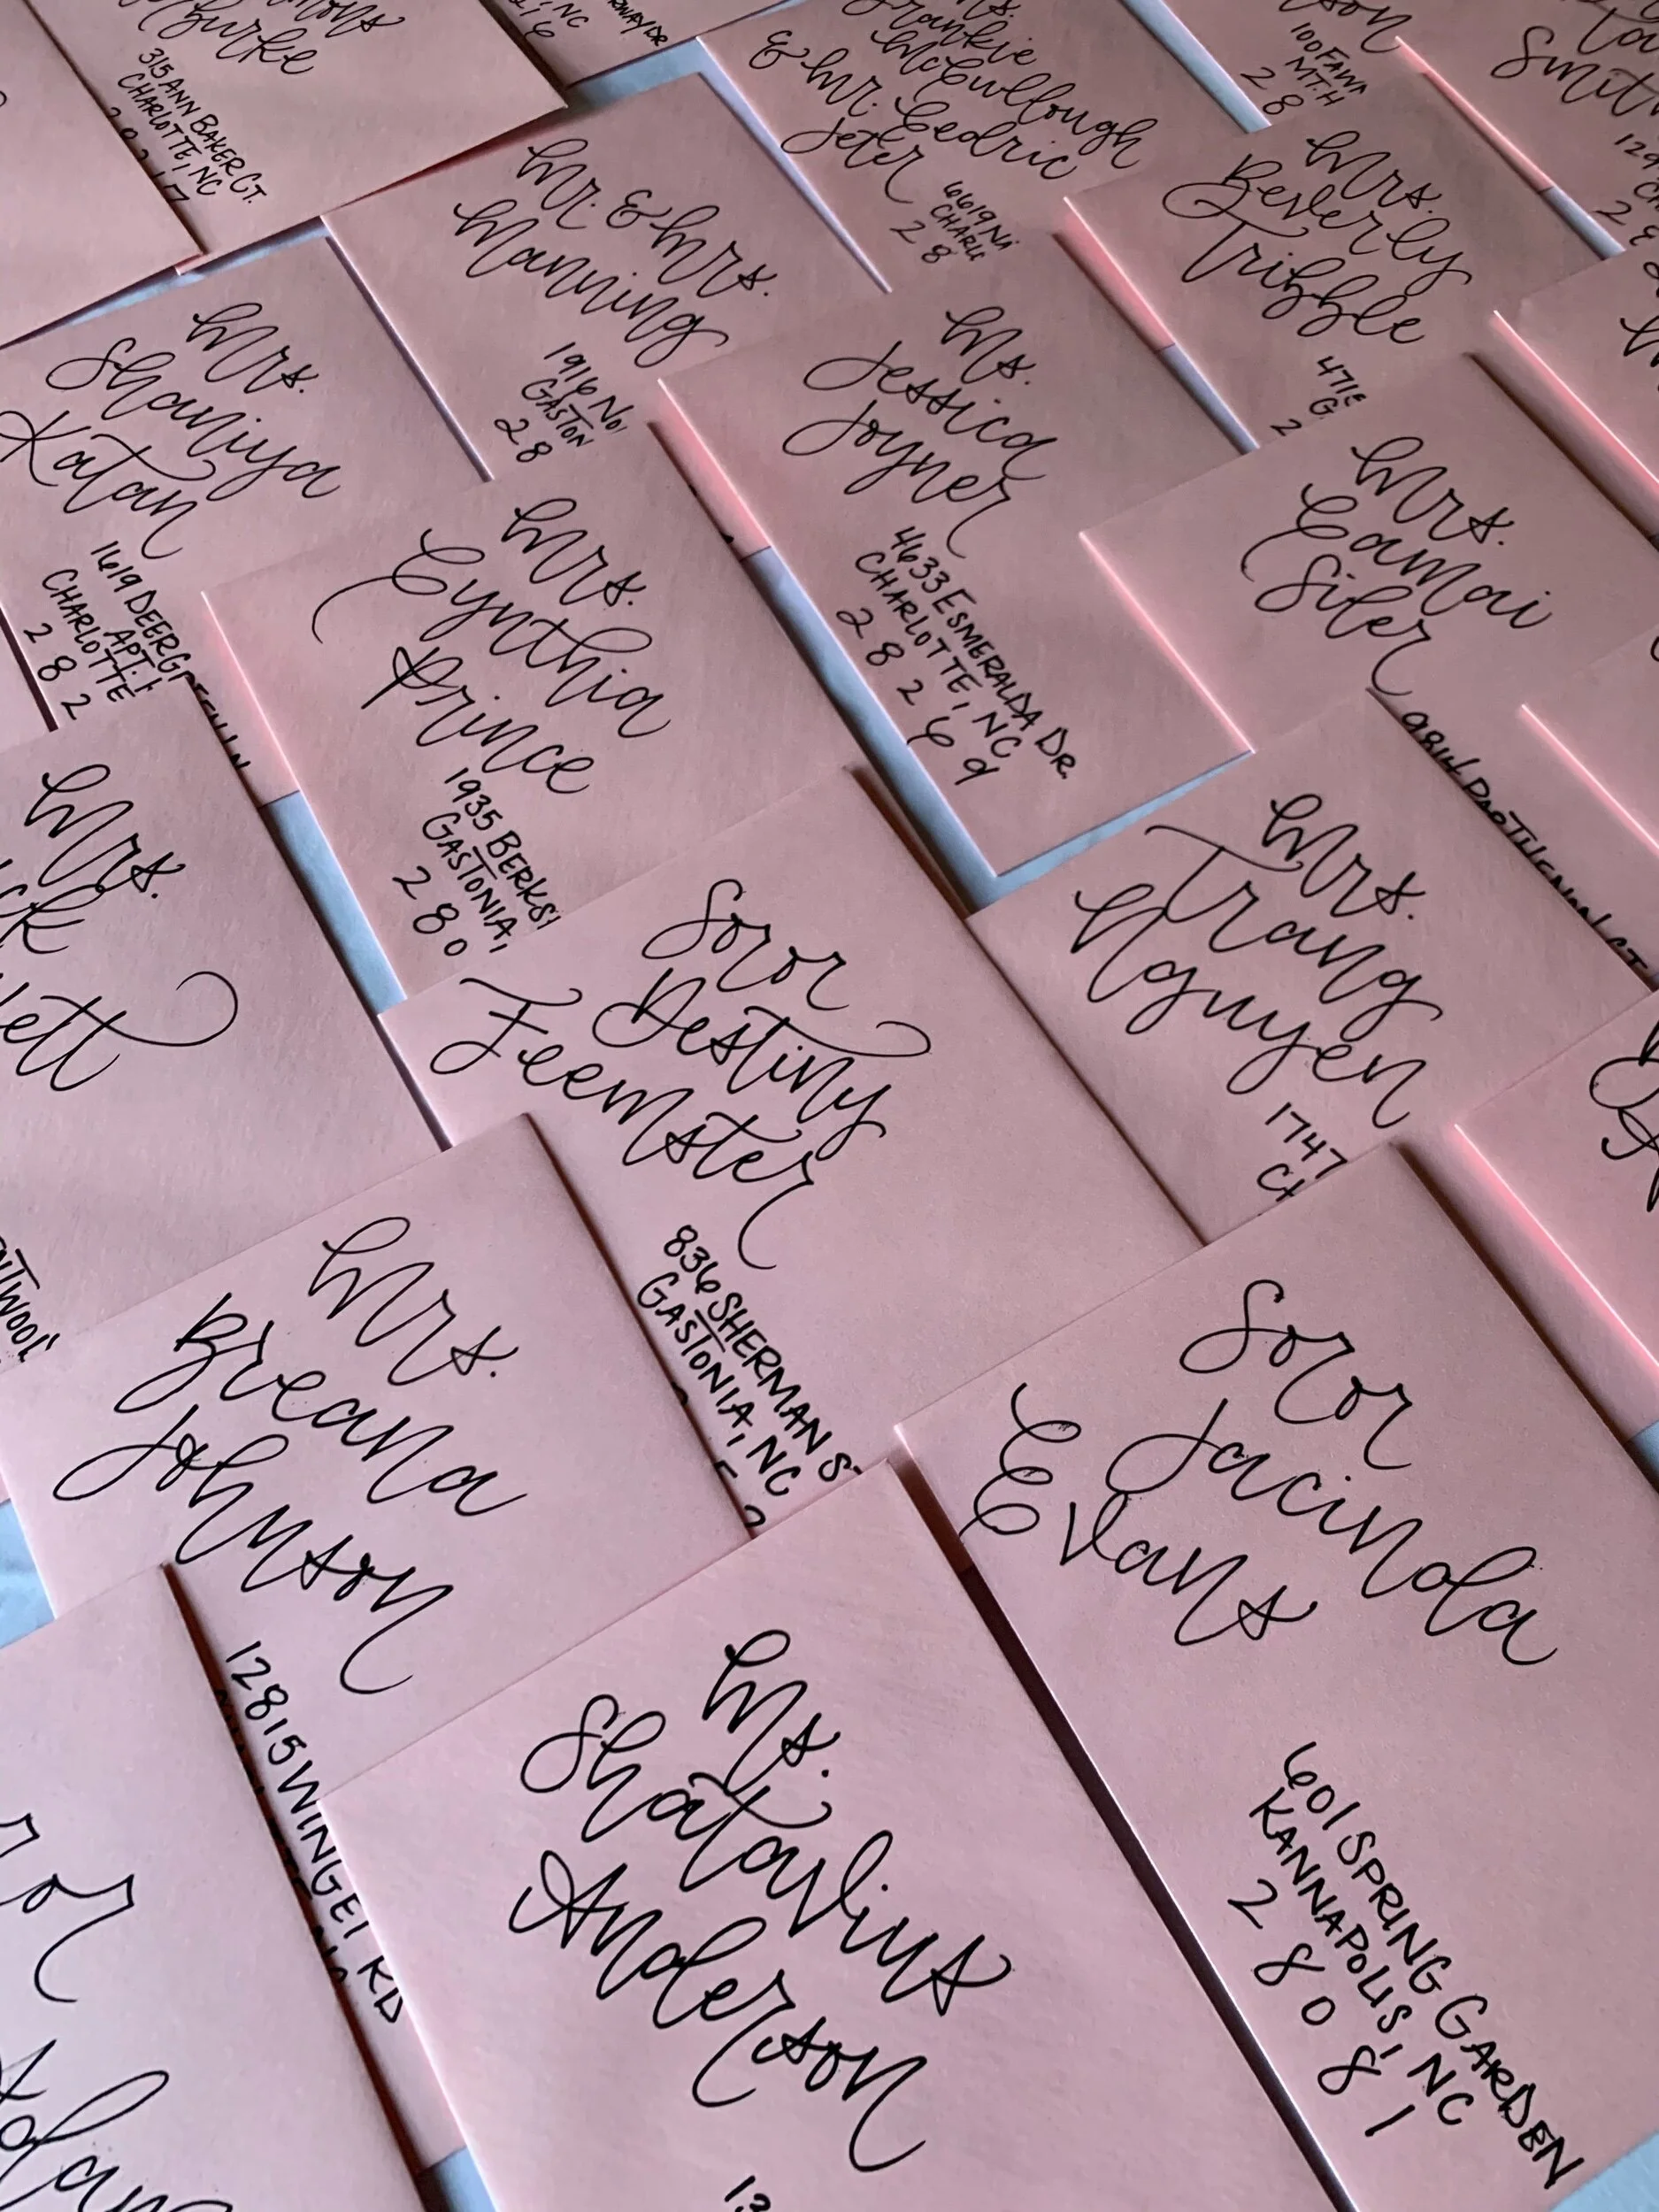 Burke
315 ANN BAKER CT.
CHARLOTTE, NC
NC
Frankie
McCullough
& Mr. Cedric
Jeter
6619
28
100 FAWN
MT. H
28
Smith
Mr. & Mrs.
Manning
1916 No
GASTON
28
Mrs.
Beverly
Tribble
Mrs.
Shaniya
Katan
1619 DEERG
APT.
CHARLOTTE
2 8 2
Ms.
Jessica
Joyner
4633 ESMERALDA DR.
CHARLOTTE, NC
2 8 2 6 9
Mrs.
Camai
Siler
Mrs.
Cynthia
Prince
1935 BERKS
GASTONIA,
2 8 0
Mrs.
Trang
Nguyen
1747
Mrs.
Soror
Destiny
Feemster
836 SHERMAN S
GASTONIA, NC
Mrs.
Breana
Johnson
12815 WINGET RD
Soror
Jacinda
Evans
601 SPRING GARDEN
KANNAPOLIS, NC
2 8 0 8 1
Ms.
Shatavius
Anderson
13